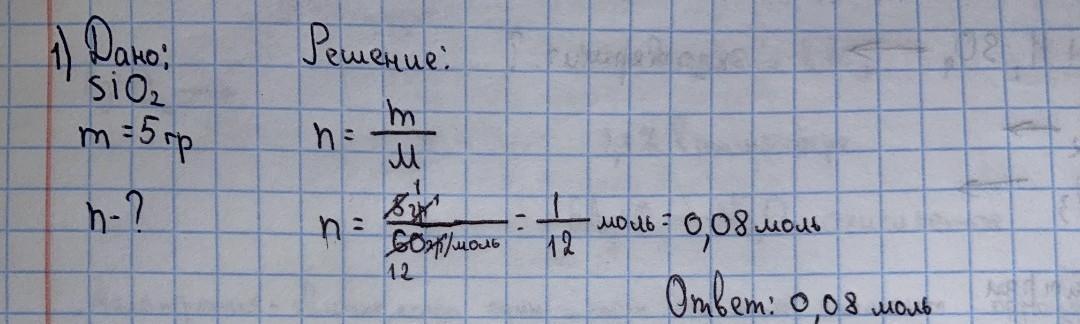 1) Дано: Решение:
SiO₂
m = 5 гр n = m/M
n - ?
n = 5 гр / 60 гр/моль = 1/12 моль = 0,08 моль
12
Ответ: 0,08 моль